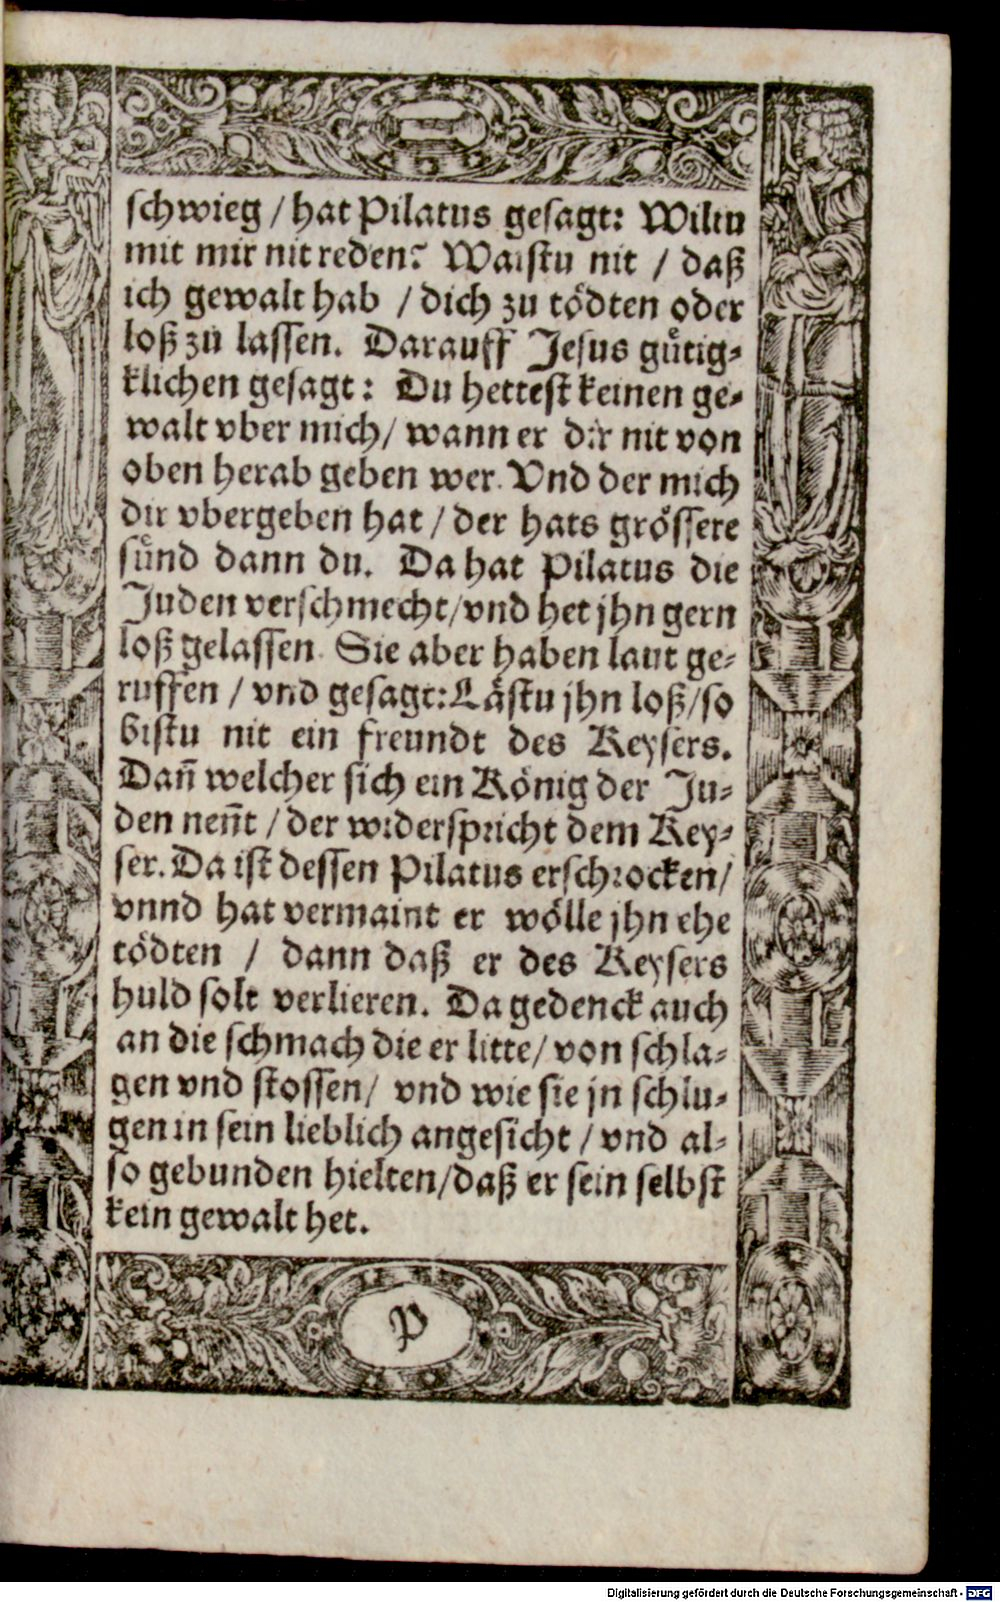 schwieg / hat Pilatus gesagt: Wiltu
mit mir nit reden? Waistu nit / daß
ich gewalt hab / dich zu tödten oder
loß zů lassen. Darauff Jesus gůtig-
klichen gesagt: Du hettest keinen ge-
walt vber mich / wann er dir nit von
oben herab geben wer. Vnd der mich
dir vbergeben hat / der hats grössere
sünd dann du. Da hat Pilatus die
Juden verschmecht / vnd het jhn gern
loß gelassen. Sie aber haben laut ge-
ruffen / vnd gesagt: Lästu jhn loß / so
bistu nit ein freundt des Keysers.
Dañ welcher sich ein König der Ju-
den neñt / der widerspricht dem Key-
ser. Da ist dessen Pilatus erschrocken /
vnnd hat vermaint er wölle jhn ehe
tödten / dann daß er des Keysers
huld solt verlieren. Da gedenck auch
an die schmach die er litte / von schla-
gen vnd stossen / vnd wie sie jn schlu-
gen in sein lieblich angesicht / vnd al-
so gebunden hielten / daß er sein selbst
kein gewalt het.
P
Digitalisierung gefördert durch die Deutsche Forschungsgemeinschaft - DFG